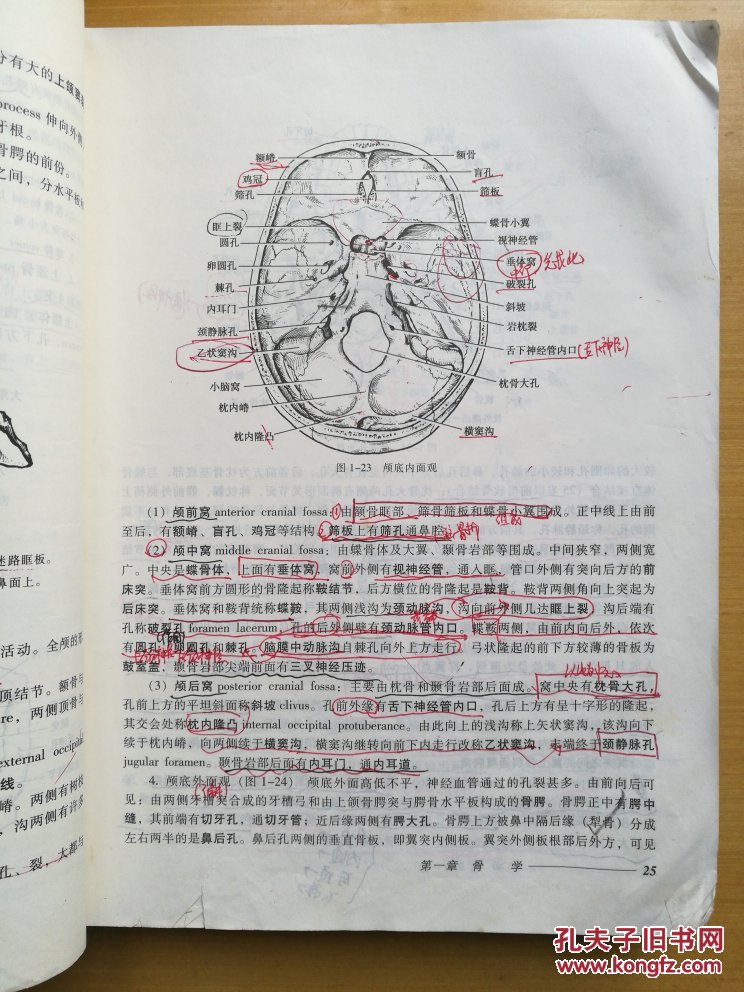 分有大的上颌窦
process 伸向外
牙根。
骨腭的前份。
之间，分水平
迷路眶板。
鼻面上。
活动。全颅的形
顶结节。额骨与
两侧顶骨与
external occipital
线。
嵴。两侧有树枝
沟两侧有许多
孔、裂，大都与
额嵴
鸡冠
筛孔
眶上裂
圆孔
卵圆孔
棘孔
内耳门
颈静脉孔
乙状窦沟
小脑窝
枕内嵴
枕内隆凸
额骨
盲孔
筛板
蝶骨小翼
视神经管
垂体窝
破裂孔
斜坡
岩枕裂
舌下神经管内口
(舌下神经)
枕骨大孔
横窦沟
图 1-23 颅底内面观
（1）颅前窝 anterior cranial fossa：由额骨眶部、筛骨筛板和蝶骨小翼围成。正中线上由前
至后，有额嵴、盲孔、鸡冠等结构，筛板上有筛孔通鼻腔。
（2）颅中窝 middle cranial fossa：由蝶骨体及大翼、颞骨岩部等围成。中间狭窄，两侧宽
广。中央是蝶骨体，上面有垂体窝，窝前外侧有视神经管，通入眶，管口外侧有突向后方的前
床突。垂体窝前方圆形的骨隆起称鞍结节，后方横位的骨隆起是鞍背。鞍背两侧角向上突起为
后床突。垂体窝和鞍背统称蝶鞍，其两侧浅沟为颈动脉沟，沟向前外侧几达眶上裂，沟后端有
孔称破裂孔 foramen lacerum，孔的后外侧壁有颈动脉管内口。蝶鞍两侧，由前内向后外，依次
有圆孔、卵圆孔和棘孔。脑膜中动脉沟自棘孔向外上方走行。弓状隆起的前下方较薄的骨板为
鼓室盖，颞骨岩部尖端前面有三叉神经压迹。
（3）颅后窝 posterior cranial fossa：主要由枕骨和颞骨岩部后面成。窝中央有枕骨大孔，
孔前上方的平坦斜面称斜坡 clivus。孔前外缘有舌下神经管内口，孔后上方有呈十字形的隆起，
其交会处称枕内隆凸 internal occipital protuberance。由此向上的浅沟称上矢状窦沟，该沟向下
续于枕内嵴，向两侧续于横窦沟，横窦沟继转向前下内走行改称乙状窦沟，末端终于颈静脉孔
jugular foramen。颞骨岩部后面有内耳门，通内耳道。
4. 颅底外面观（图 1-24） 颅底外面高低不平，神经血管通过的孔裂甚多。由前向后可
见：由两侧牙槽突合成的牙槽弓和由上颌骨腭突与腭骨水平板构成的骨腭。骨腭正中有腭中
缝，其前端有切牙孔，通切牙管；近后缘两侧有腭大孔。骨腭上方被鼻中隔后缘（犁骨）分成
左右两半的是鼻后孔。鼻后孔两侧的垂直骨板，即翼突内侧板。翼突外侧板根部后外方，可见
第一章 骨 学
25
孔夫子旧书网
www.kongfz.com